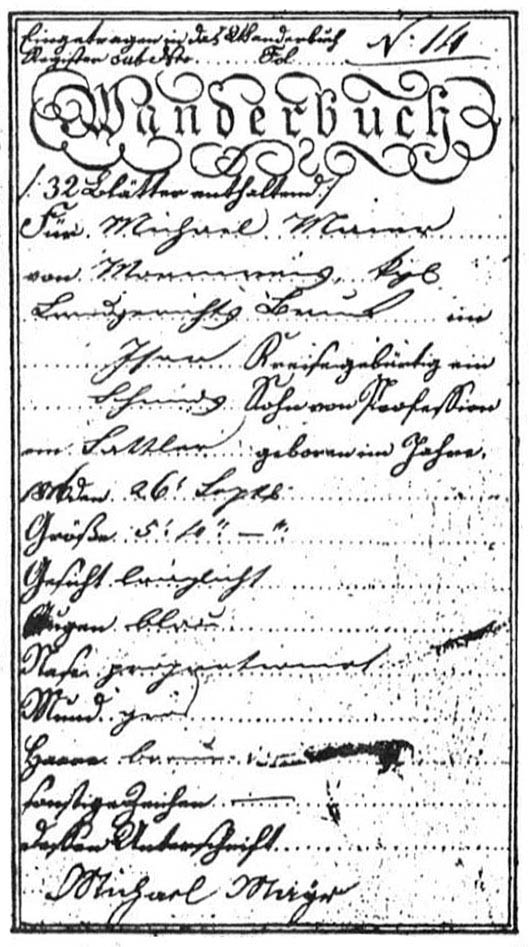 Eingetragen in das Wanderbuch
Register sub Nro. Fol.
N. 14
Wanderbuch
/: 32 Blätter enthaltend :/
Für Michael Maier
von kgl
Landgerichts Bruck im
Isar Kreise gebürtig ein
Schmids Sohn von Profession
ein Sattler geboren im Jahre
den 26t Sept
Größe 5' 10" — "'
Gesicht länglicht
Augen blau
Nase proportionirt
Mund
Haare braun
sonstige Zeichen —
dessen Unterschrift
Michael Mayr